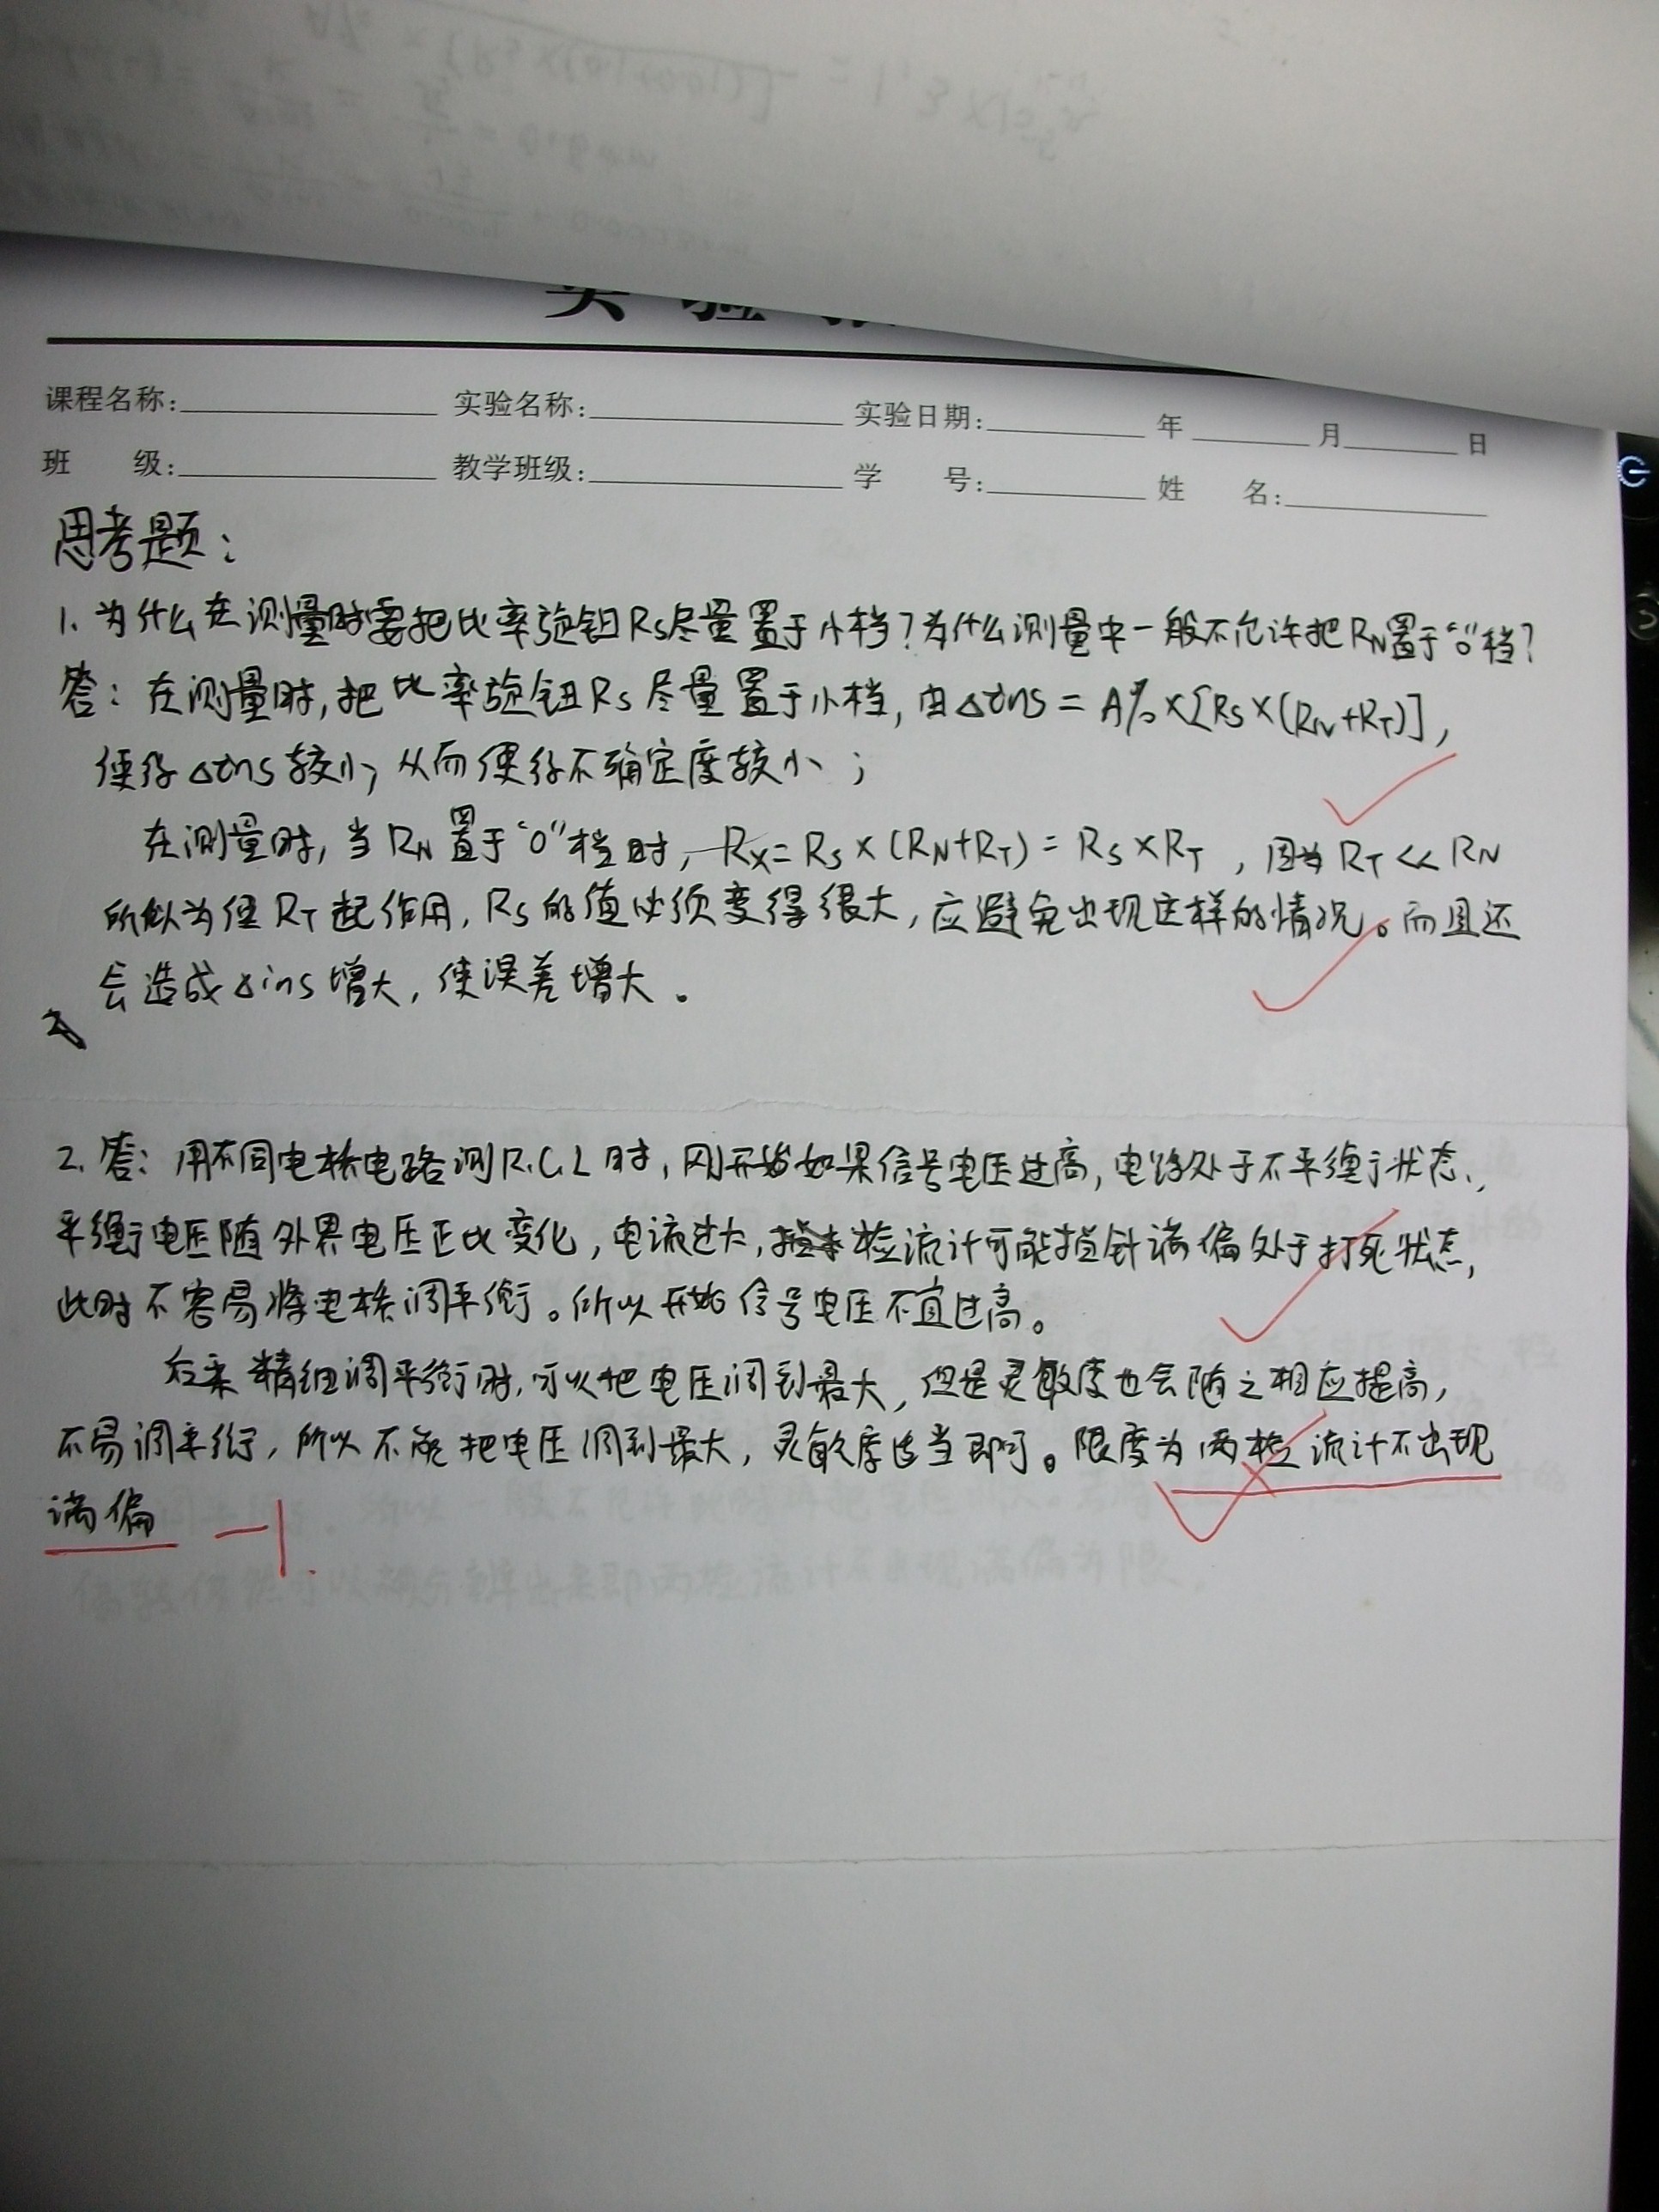 课程名称: 实验名称: 实验日期: 年 月 日
班 级: 教学班级: 学 号: 姓 名:
思考题：
1. 为什么在测量时要把比率旋钮Rs尽量置于小档？为什么测量中一般不允许把RN置于“0”档？
答：在测量时，把比率旋钮Rs尽量置于小档，由△ins = A%×[Rs×(RN+RT)]，
使得△ins较小，从而使得不确定度较小；
在测量时，当RN置于“0”档时，Rx=Rs×(RN+RT)=Rs×RT，因为RT<<RN
所以为使RT起作用，Rs的值必须变得很大，应避免出现这样的情况。而且还
会造成△ins增大，使误差增大。
2. 答：用不同电桥电路测R.C.L时，刚开始如果信号电压过高，电路处于不平衡状态，
平衡电压随外界电压正比变化，电流过大，检流计可能指针满偏处于打死状态，
此时不容易将电桥调平衡。所以开始信号电压不宜过高。
后来精细调平衡时，可以把电压调到最大，但是灵敏度也会随之相应提高，
不易调平衡，所以不能把电压调到最大，灵敏度适当即可。限度为两检流计不出现
满偏 -1.